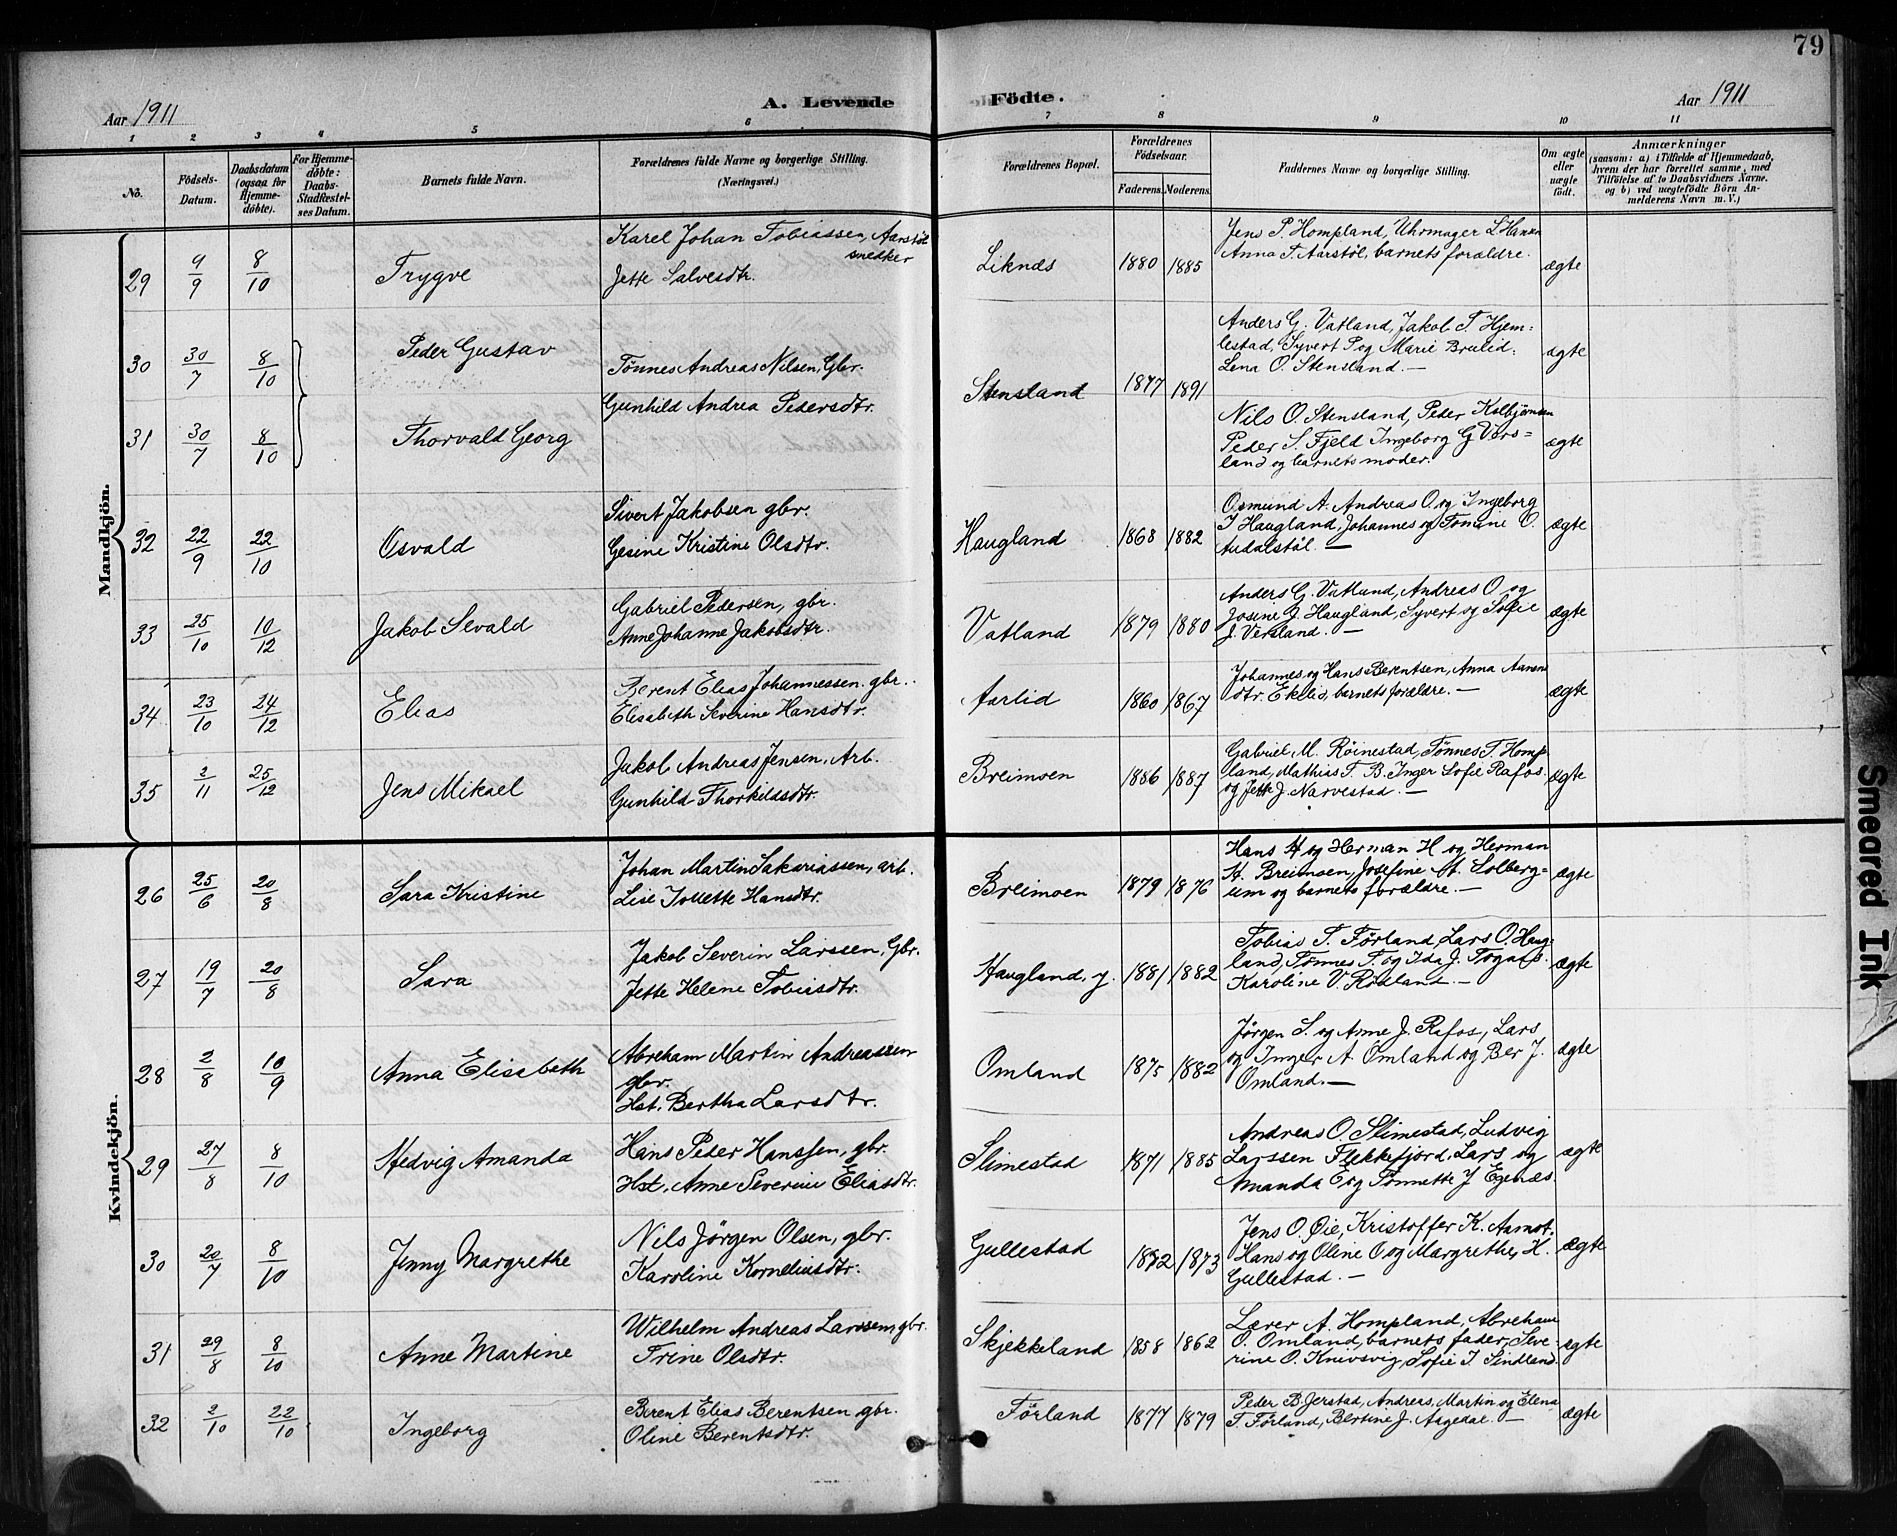 79
Aar 1911
A. Levende Födte.
Aar 1911
1 2 3 4 5 6 7 8 9 10 11
No.
Födsels-Datum.
Daabsdatum (ogsaa for Hjemme-döbte).
For Hjemme-döbte: Daabs-Stadfæstel-ses Datum.
Barnets fulde Navn.
Forældrenes fulde Navne og borgerlige Stilling.
(Næringsvei.)
Forældrenes Bopæl.
Forældrenes Födselsaar.
Faderens. Moderens.
Faddernes Navne og borgerlige Stilling.
Om ægte eller uægte födt.
Anmærkninger
(saasom: a) i Tilfælde af Hjemmedaab,
hvem der har forrettet samme, med
Tilföielse af to Daabsvidners Navne.
og b) ved uægtefödte Börn An-
melderens Navn m. V.)
Mandkjön.
29 9/9 8/10 Trygve
Karel Johan Tobiassen, Aarstöl
snedker
Jette Salvesdtr.
Liknæs 1880 1885
Jens P. Hompland, Uhrmager L Hansen
Anna T. Aarstøl, barnets forældre.
ægte
30 30/7 8/10 Peder Gustav
Tønnes Andreas Nilsen, Gbr.
Gunhild Andrea Pedersdtr.
Stensland 1877 1891
Anders G. Vatland, Jakob T. Hjem=
lestad, Syvert P og Marie Brulid.
Lena O. Stensland. —
ægte
31 30/7 8/10 Thorvald Georg
Nils O. Stensland, Peder
Peder S. Fjeld Ingeborg G Vers=
land og barnets moder.
ægte
32 22/9 22/10 Osvald
Sivert Jakobsen gbr.
Gesine Kristine Olsdtr.
Haugland 1868 1882
Osmund A. Andreas O. og Ingeborg
I Haugland, Johannes og Tomine O.
Audalstøl. —
ægte
33 25/10 10/12 Jakob Sevald
Gabriel Pedersen, gbr.
Anne Johanne Jakobsdtr.
Vatland 1879 1880
Anders G. Vatland, Andreas O. og
Josine J. Haugland, Syvert og Sofie
J. Versland. —
ægte
34 23/10 24/12 Elias
Berent Elias Johannessen. gbr.
Elisabeth Severine Hansdtr.
Aarlid 1860 1867
Johannes og Hans Berentsen, Anna
dtr. Eklid, barnets forældre. —
ægte
35 2/11 25/12 Jens Mikael
Jakob Andreas Jensen, Arb.
Gunhild Thorkildsdtr.
Breimoen 1886 1887
Gabriel M. Røinestad, Tønnes T. Homp
land, Mathias T. B. Inger Sofie Rafos.
og Jette J. Narvestad. —
ægte
Kvindekjön.
26 25/6 20/8 Sara Kristine
Johan Martin Sakariassen, arb.
Lise Jollette Hansdtr.
Breimoen 1879 1876
Hans H og Herman H og Herman
H. Breimoen, Josefine A. Solberg=
um og barnets forældre. —
ægte
27 19/7 20/8 Sara
Jakob Severin Larssen, Gbr.
Jette Helene Tobiasdtr.
Haugland, y. 1881 1882
Tobias T. Førland, Lars O. Haug=
land, Tønnes T. og Ida J.
Karoline V. Rödland. —
ægte
28 2/8 10/9 Anna Elisabeth
Abreham Martin Andreassen
gbr.
Hst. Bertha Larsdtr.
Omland 1875 1882
Jørgen S. og Anne J. Rafos, Lars
og Inger A. Omland og Ber J.
Omland. —
ægte
29 27/8 8/10 Hedvig Amanda
Hans Peder Hanssen, gbr.
Hst. Anne Severine Eliasdtr.
Slimestad 1871 1885
Andreas O. Slimestad, Ludvig
Larssen Flekkefjord, Lars og
Amanda E og Tønnette J Egenæs.
ægte
30 20/7 8/10 Jenny Margrethe
Nils Jörgen Olsen, gbr.
Karoline Korneliusdtr.
Gullestad 1872 1873
Jens O. Øie, Kristoffer K. Aamot.
Hans og Oline O og Margrethe H.
Gullestad. —
ægte
31 29/8 8/10 Anne Martine
Wilhelm Andreas Larssen, gbr.
Trine Olsdtr.
Skjekkeland 1858 1862
Lærer A. Hompland, Abreham
O. Omland, barnets fader, Seve-
rine O. Knivsvig, Sofie I Sindland.
ægte
32 2/10 22/10 Ingeborg
Berent Elias Berentsen, gbr.
Oline Berentsdtr.
Førland 1877 1879
Peder B. Jerstad, Andreas, Martin og Elena
T. Førland, Bertine J. Aagedal. —
ægte
Smeared Ink